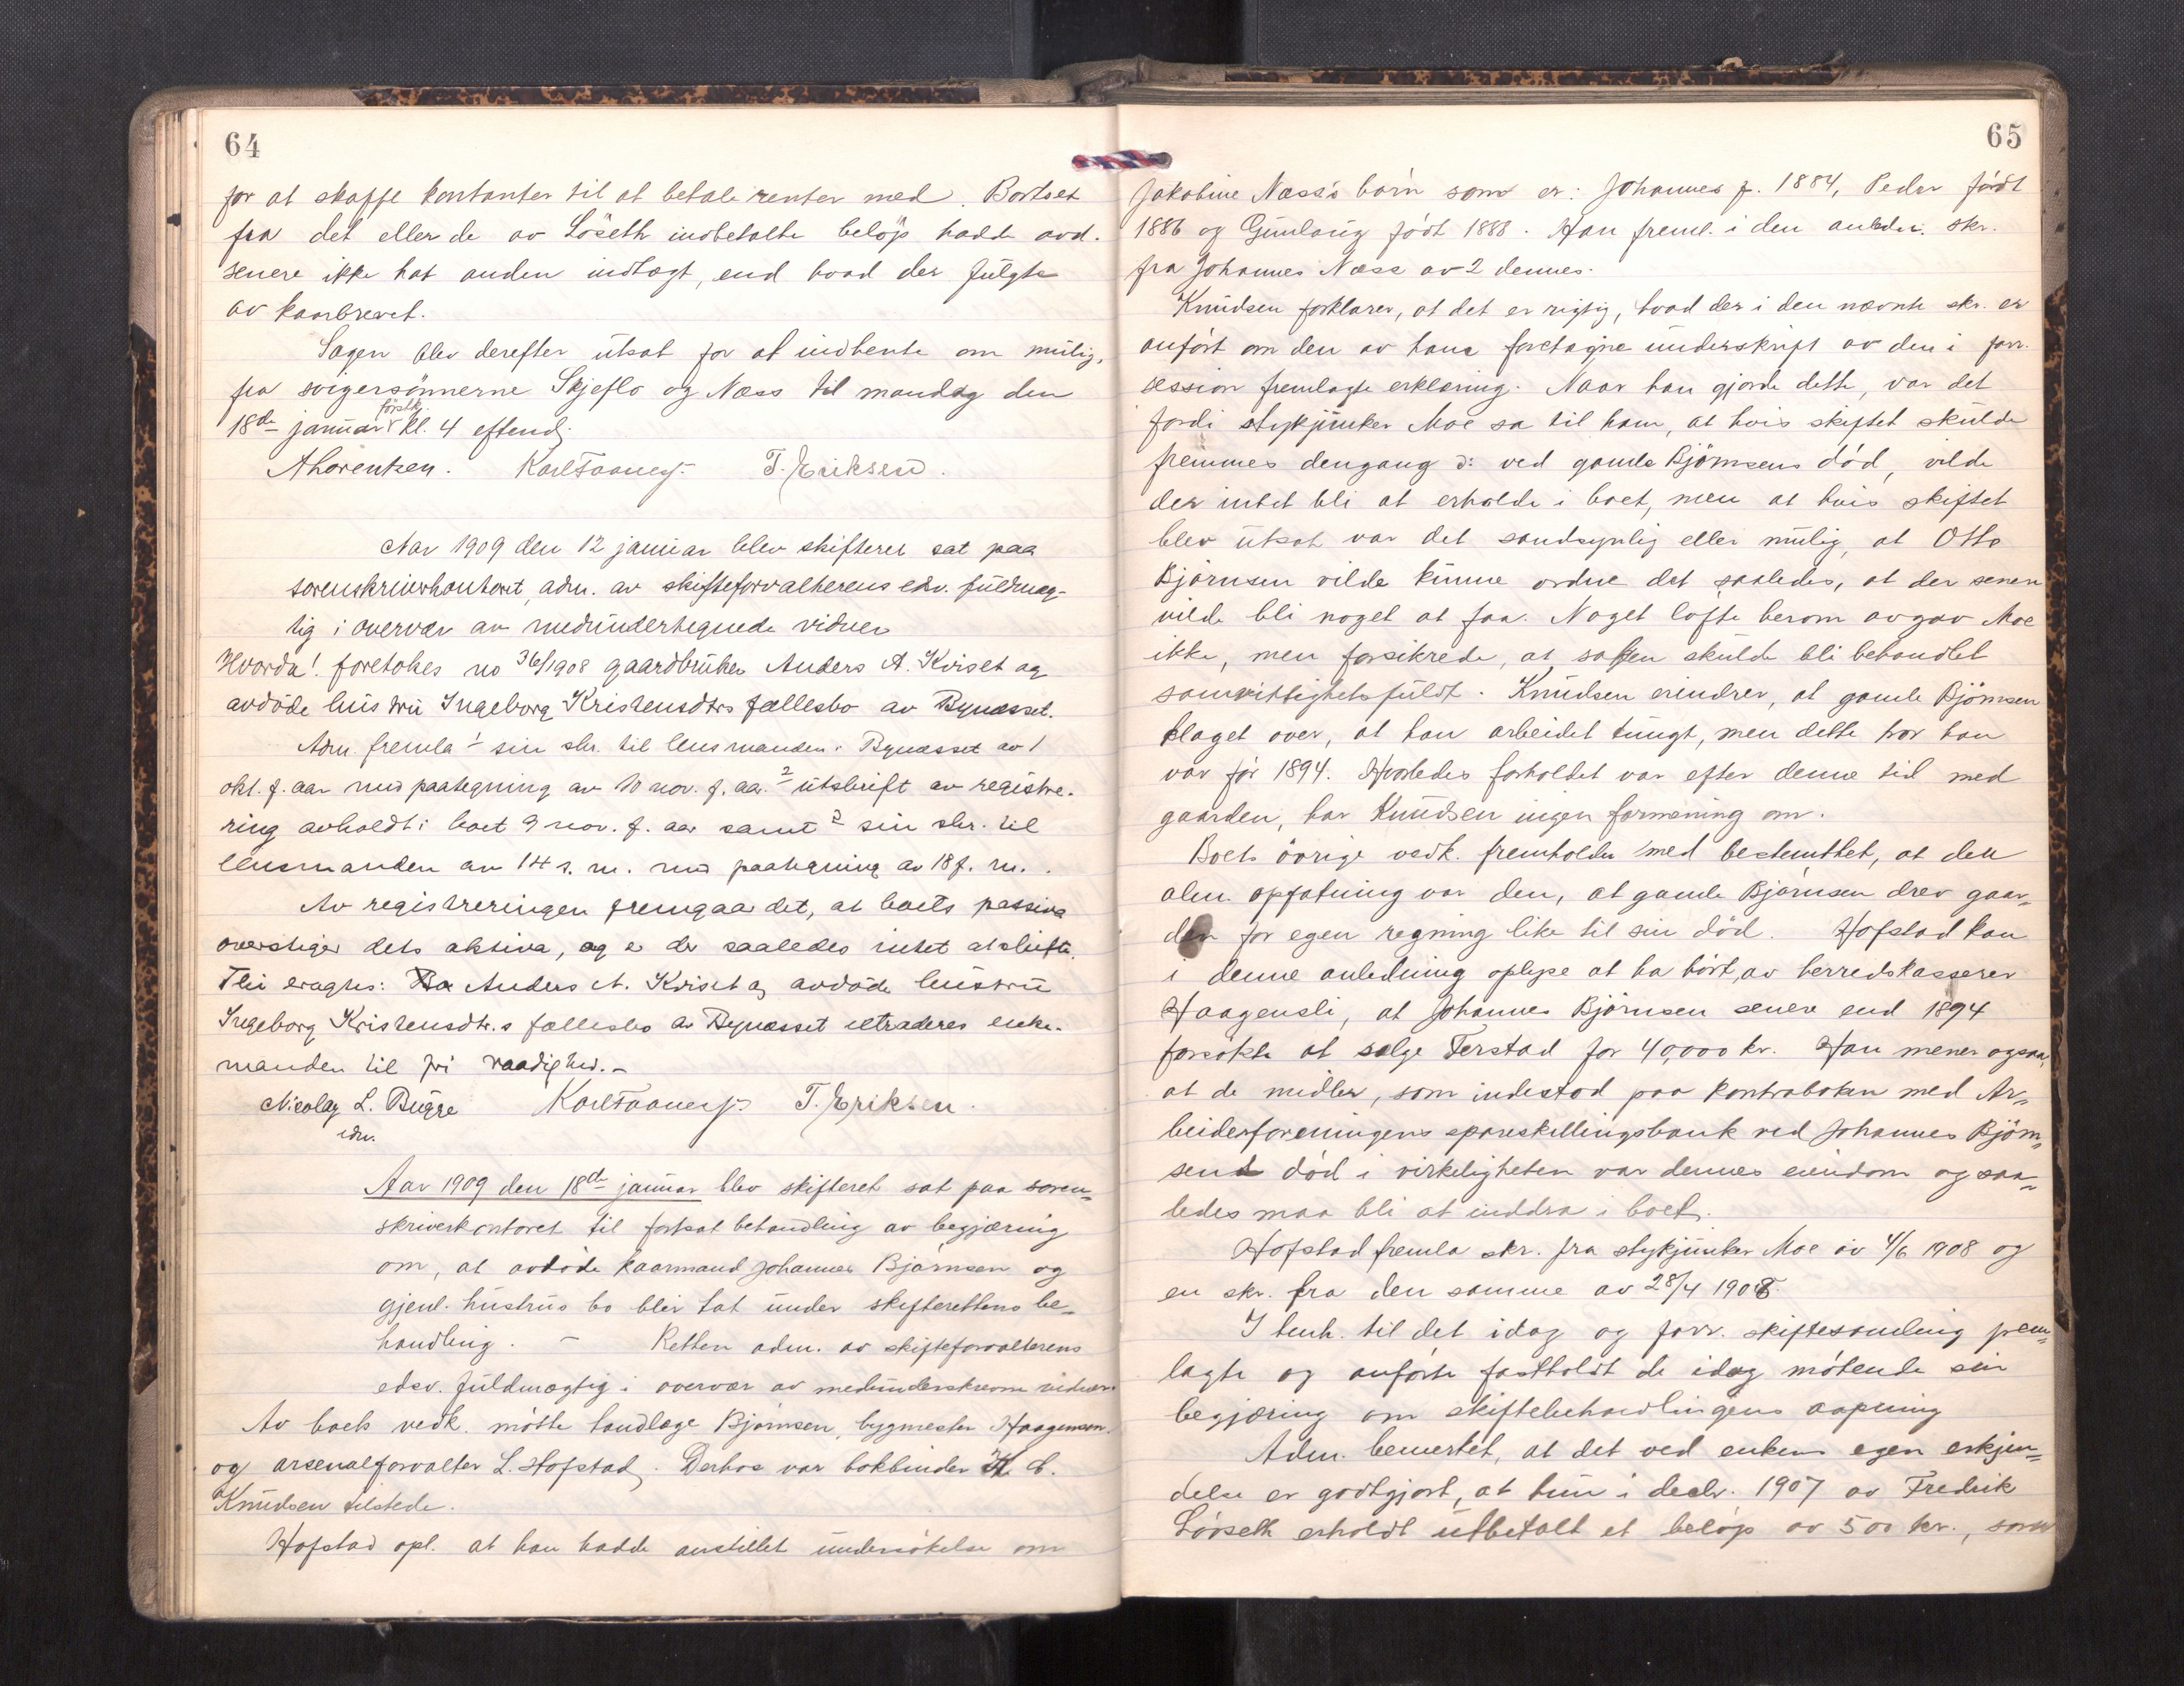 64
for at skaffe kontanter til at betale renter med. Bortset
fra det eller de av Löseth indbetalte belöp hadde avd.
senere ikke hat anden indtægt, end hvad der fulgte
av kaarbrevet.
Sagen blev derefter utsat for at indhente om mulig,
fra svigersönnerne Skjeflo og Næss til mandag den
18de januar förstk. kl. 4 eftmd.
A Lorentzen. Karl Faanes. T. Eriksen.
Aar 1909 den 12 januar blev skifteret sat paa
sorenskriverkontoret, adm. av skifteforvalterens edsv. fuldmæg-
tig i overvær av medundertegnede vidner
Hvorda! foretokes no 36/1908 gaardbruker Anders A. Kviset og
avdöde hustru Ingeborg Kristensdtrs fællesbo av Bynæsset.
Adm. fremla 1 sin skr. til lensmanden i Bynæsset av 1
okt. f. aar med paategning av 10 nov. f. aar. 2 utskrift av registre-
ring avholdt i boet 9 nov. f. aar samt 3 sin skr. til
lensmanden av 14 s. m. med paategning av 18 f. m..
Av registreringen fremgaar det, at boets passiva
overstiger dets aktiva, og er der saaledes intet at skifte.
Ti eragtes: Anders A. Kviset og avdöde hustru
Ingeborg Kristensdtr.s fællesbo av Bynæsset extraderes enke-
manden til fri raadighed.-
Nicolay L. Bugge Karl Faanes T. Eriksen.
edsv.
Aar 1909 den 18de januar blev skifteret sat paa soren-
skriverkontoret til fortsat behandling av begjæring
om, at avdöde kaarmand Johannes Björnsen og
gjenl. hustrus bo blir tat under skifterettens be-
handling. - Retten adm. av skifteforvalterens
edsv. fuldmægtig i overvær av medunderskrevne vidner.
Av boets vedk. mötte tandlæge Björnsen, bygmester Haagensen.
og arsenalforvalter L. Hofstad. Derhos var bokbinder K. A.
Knudsen tilstede.
Hofstad opl. at han hadde anstillet undersökelse om
65
Jakobine Næss's börn som er: Johannes f. 1884, Peder född
1886 og Gunlaug född 1888. Han freml. i den anledn. skr.
fra Johannes Næss av 2 dennes.
Knudsen forklarer, at det er rigtig, hvad der i den nævnte skr. er
anfört om den av ham foretagne underskrift av den i forr.
session fremlagte erklæring. Naar han gjorde dette, var det
fordi stykjunker Moe sa til ham, at hvis skiftet skulde
fremmes dengang ɔ: ved gamle Björnsens död, vilde
der intet bli at erholde i boet, men at hvis skiftet
blev utsat var det sandsynlig eller mulig, at Otto
Björnsen vilde kunne ordne det saaledes, at der senere
vilde bli noget at faa. Noget löfte herom avgav Moe
ikke, men forsikrede, at saken skulde bli behandlet
samvittighetsfuldt. Knudsen erindrer, at gamle Björnsen
klaget over, at han arbeidet tungt, men dette tror han
var för 1894. Hvorledes forholdet var efter denne tid med
gaarden, har Knudsen ingen formening om.
Boets övrige vedk. fremholder med bestemthet, at den
alm. opfatning var den, at gamle Björnsen drev gaar-
den for egen regning like til sin död. Hofstad kan
i denne anledning oplyse at ha hört, av herredskasserer
Haagensli, at Johannes Björnsen senere end 1894
forsökte at sælge Ferstad for 40,000 kr. Han mener ogsaa,
at de midler, som indestod paa kontraboken med Ar-
beiderforeningens spareskillingsbank ved Johannes Björn-
sens död i virkeligheten var dennes eiendom og saa-
ledes maa bli at inddra i boet.
Hofstad fremla skr. fra stykjunker Moe av 4/6 1908 og
en skr. fra den samme av 28/4 1908.
I henh. til det idag og forr. skiftesamling frem-
lagte og anförte fastholdt de idag mötende sin
begjæring om skiftebehandlingens aapning
Adm. bemerket, at det ved enkens egen erkjen-
delse er godtgjort, at hun i decbr. 1907 av Fredrik
Lövseth erholdt utbetalt et belöp av 500 kr., som